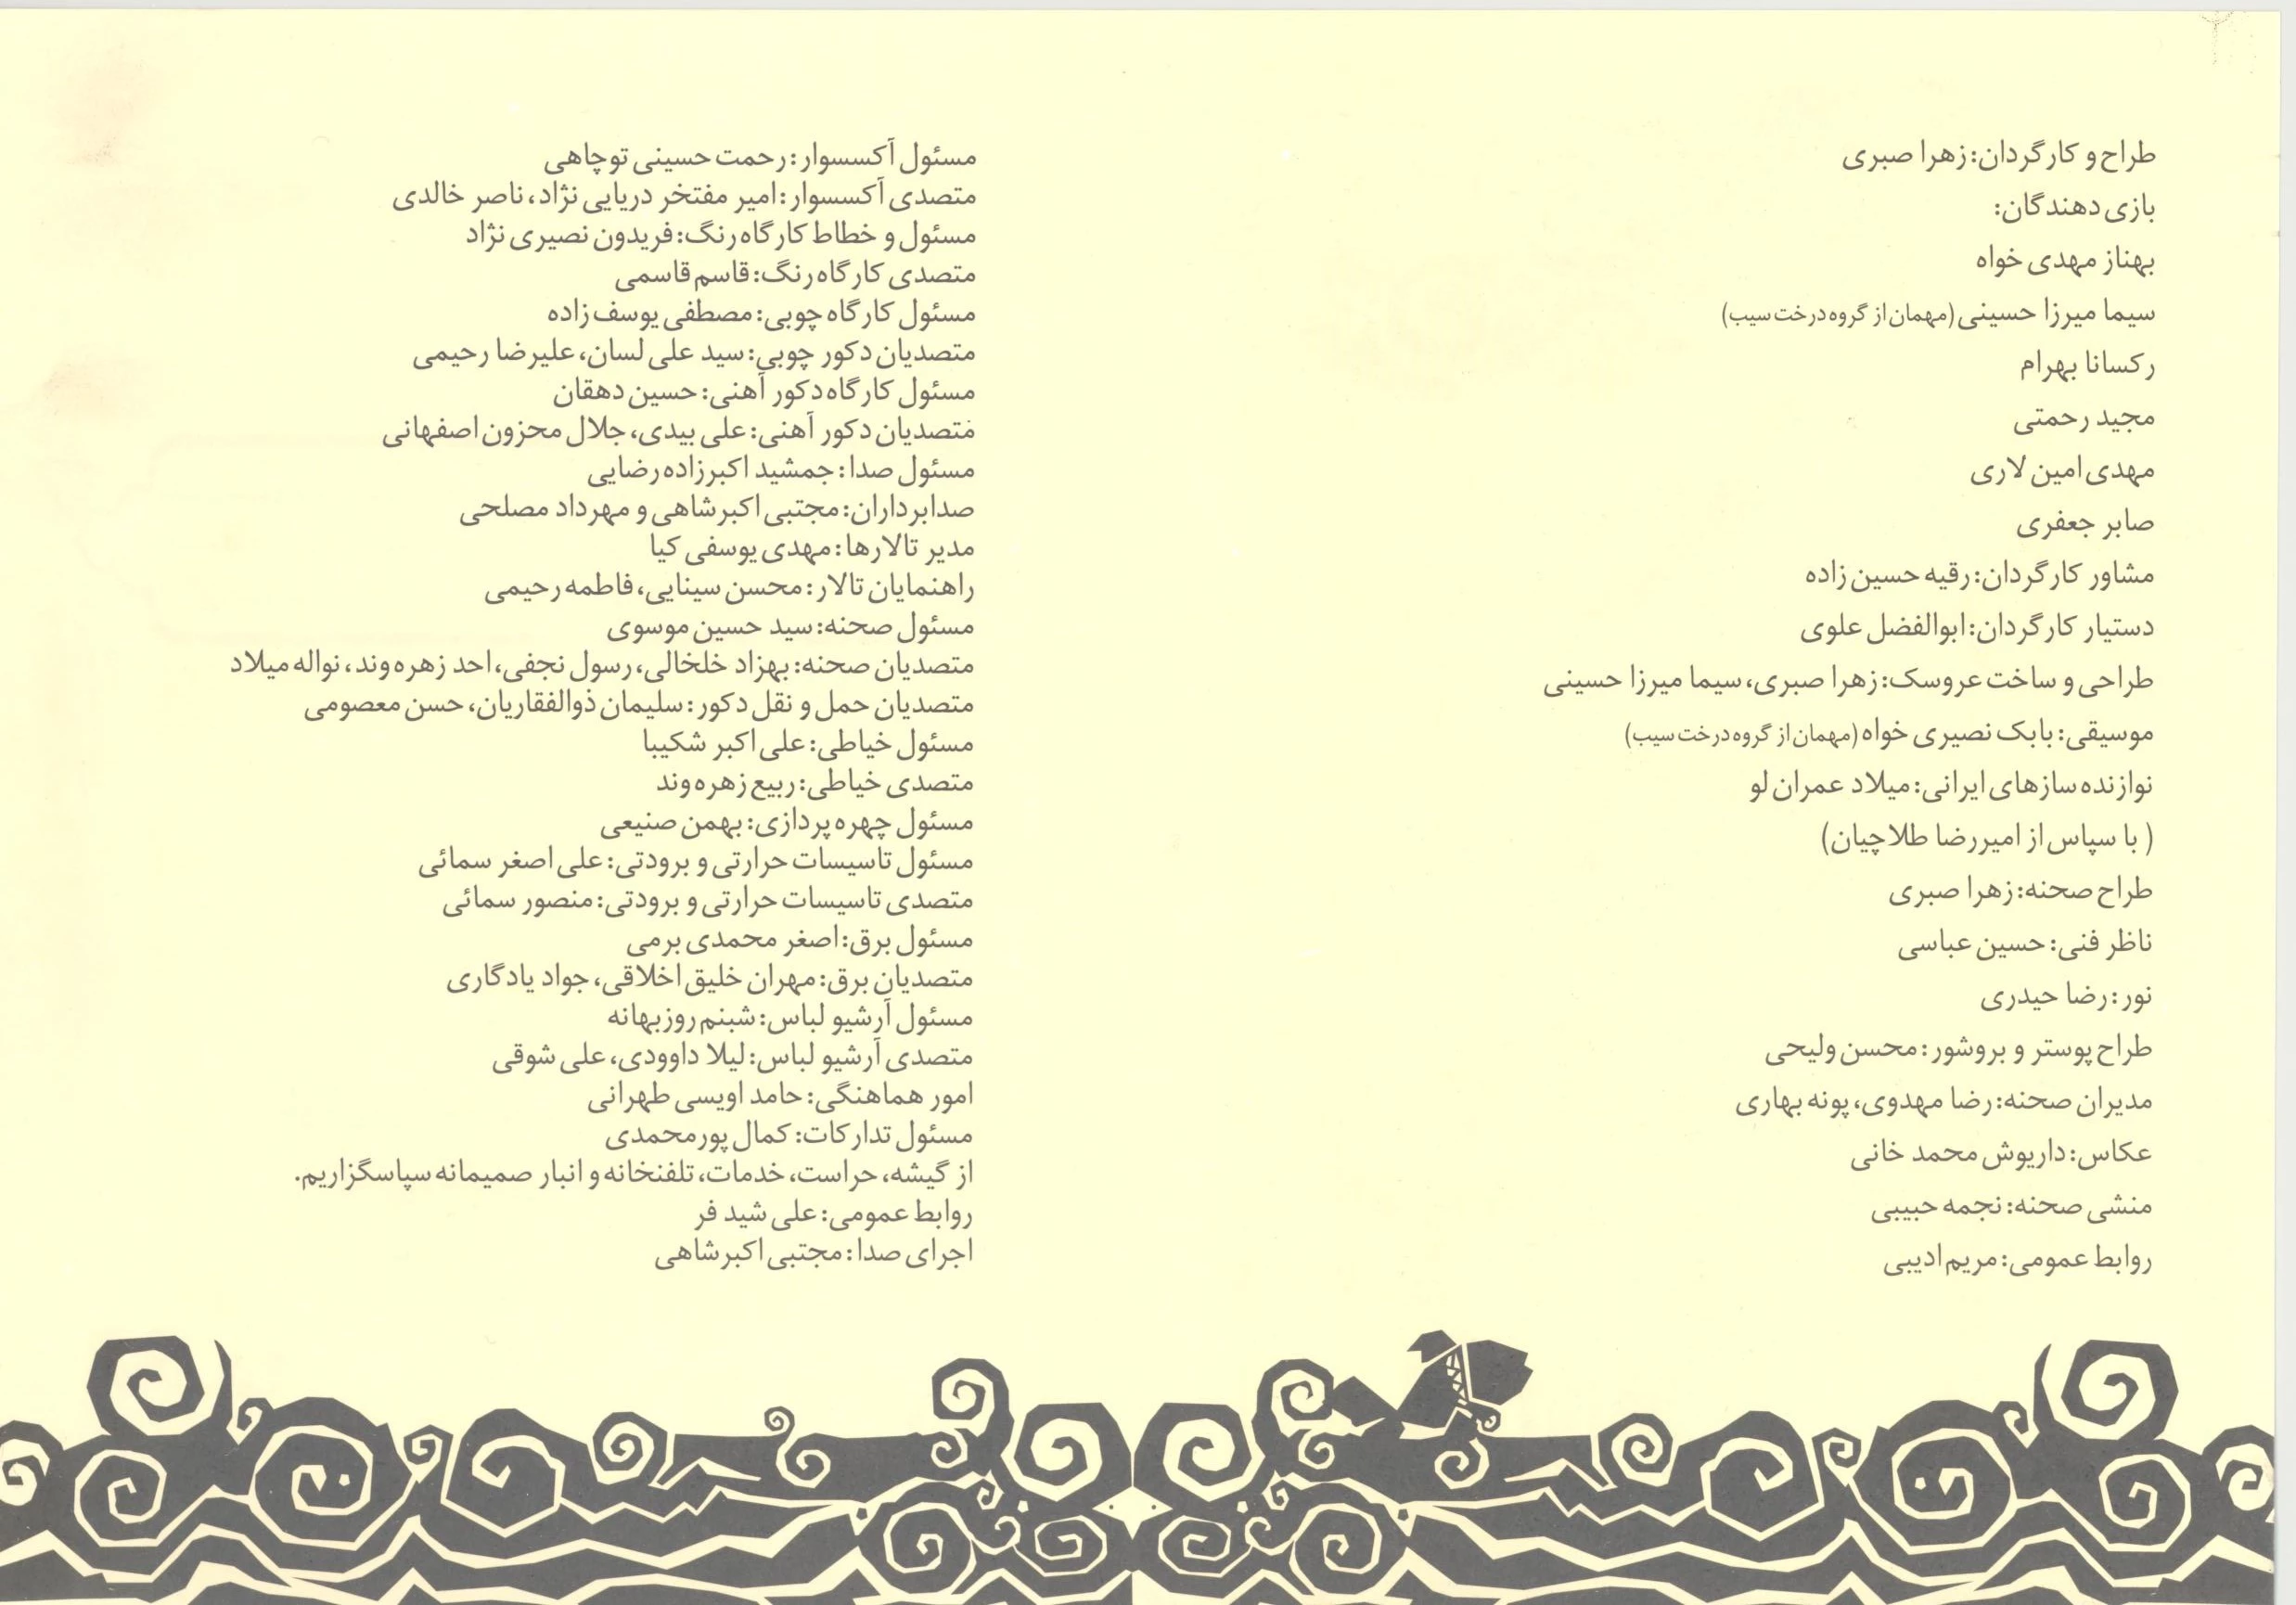 طراح و کارگردان: زهرا صبری
بازی دهندگان:
بهناز مهدی خواه
سیما میرزا حسینی (مهمان از گروه درخت سیب)
رکسانا بهرام
مجید رحمتی
مهدی امین لاری
صابر جعفری
مشاور کارگردان: رقیه حسین زاده
دستیار کارگردان: ابوالفضل علوی
طراحی و ساخت عروسک: زهرا صبری، سیما میرزا حسینی
موسیقی: بابک نصیری خواه (مهمان از گروه درخت سیب)
نوازنده سازهای ایرانی: میلاد عمران لو
( با سپاس از امیررضا طلاچیان)
طراح صحنه: زهرا صبری
ناظر فنی: حسین عباسی
نور: رضا حیدری
طراح پوستر و بروشور: محسن ولیحی
مدیران صحنه: رضا مهدوی، پونه بهاری
عکاس: داریوش محمد خانی
منشی صحنه: نجمه حبیبی
روابط عمومی: مریم ادیبی
مسئول آکسسوار: رحمت حسینی توچاهی
متصدی آکسسوار: امیر مفتخر دریایی نژاد، ناصر خالدی
مسئول و خطاط کارگاه رنگ: فریدون نصیری نژاد
متصدی کارگاه رنگ: قاسم قاسمی
مسئول کارگاه چوبی: مصطفی یوسف زاده
متصدیان دکور چوبی: سید علی لسان، علیرضا رحیمی
مسئول کارگاه دکور آهنی: حسین دهقان
متصدیان دکور آهنی: علی بیدی، جلال محزون اصفهانی
مسئول صدا: جمشید اکبرزاده رضایی
صدابرداران: مجتبی اکبرشاهی و مهرداد مصلحی
مدیر تالارها: مهدی یوسفی کیا
راهنمایان تالار: محسن سینایی، فاطمه رحیمی
مسئول صحنه: سید حسین موسوی
متصدیان صحنه: بهزاد خلخالی، رسول نجفی، احد زهره وند، نواله میلاد
متصدیان حمل و نقل دکور: سلیمان ذوالفقاریان، حسن معصومی
مسئول خیاطی: علی اکبر شکیبا
متصدی خیاطی: ربیع زهره وند
مسئول چهره پردازی: بهمن صنیعی
مسئول تاسیسات حرارتی و برودتی: علی اصغر سمائی
متصدی تاسیسات حرارتی و برودتی: منصور سمائی
مسئول برق: اصغر محمدی برمی
متصدیان برق: مهران خلیق اخلاقی، جواد یادگاری
مسئول آرشیو لباس: شبنم روزبهانه
متصدی آرشیو لباس: لیلا داوودی، علی شوقی
امور هماهنگی: حامد اویسی طهرانی
مسئول تدارکات: کمال پورمحمدی
از گیشه، حراست، خدمات، تلفنخانه و انبار صمیمانه سپاسگزاریم.
روابط عمومی: علی شید فر
اجرای صدا: مجتبی اکبرشاهی